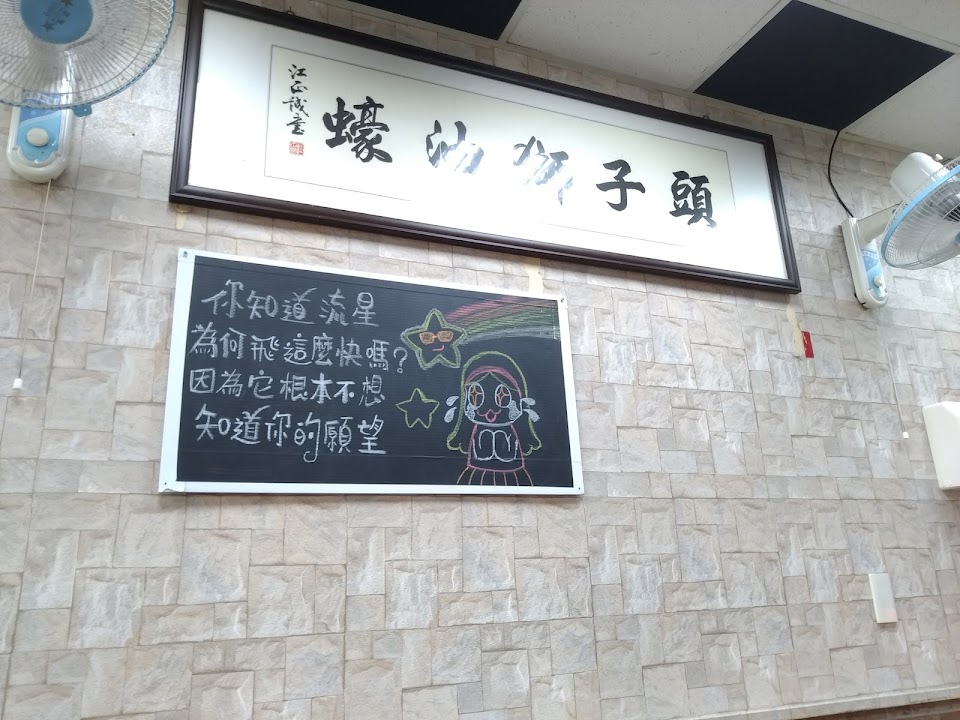 蠔油獅子頭
江正誠書
你知道流星
為何飛這麼快嗎?
因為它根本不想
知道你的願望